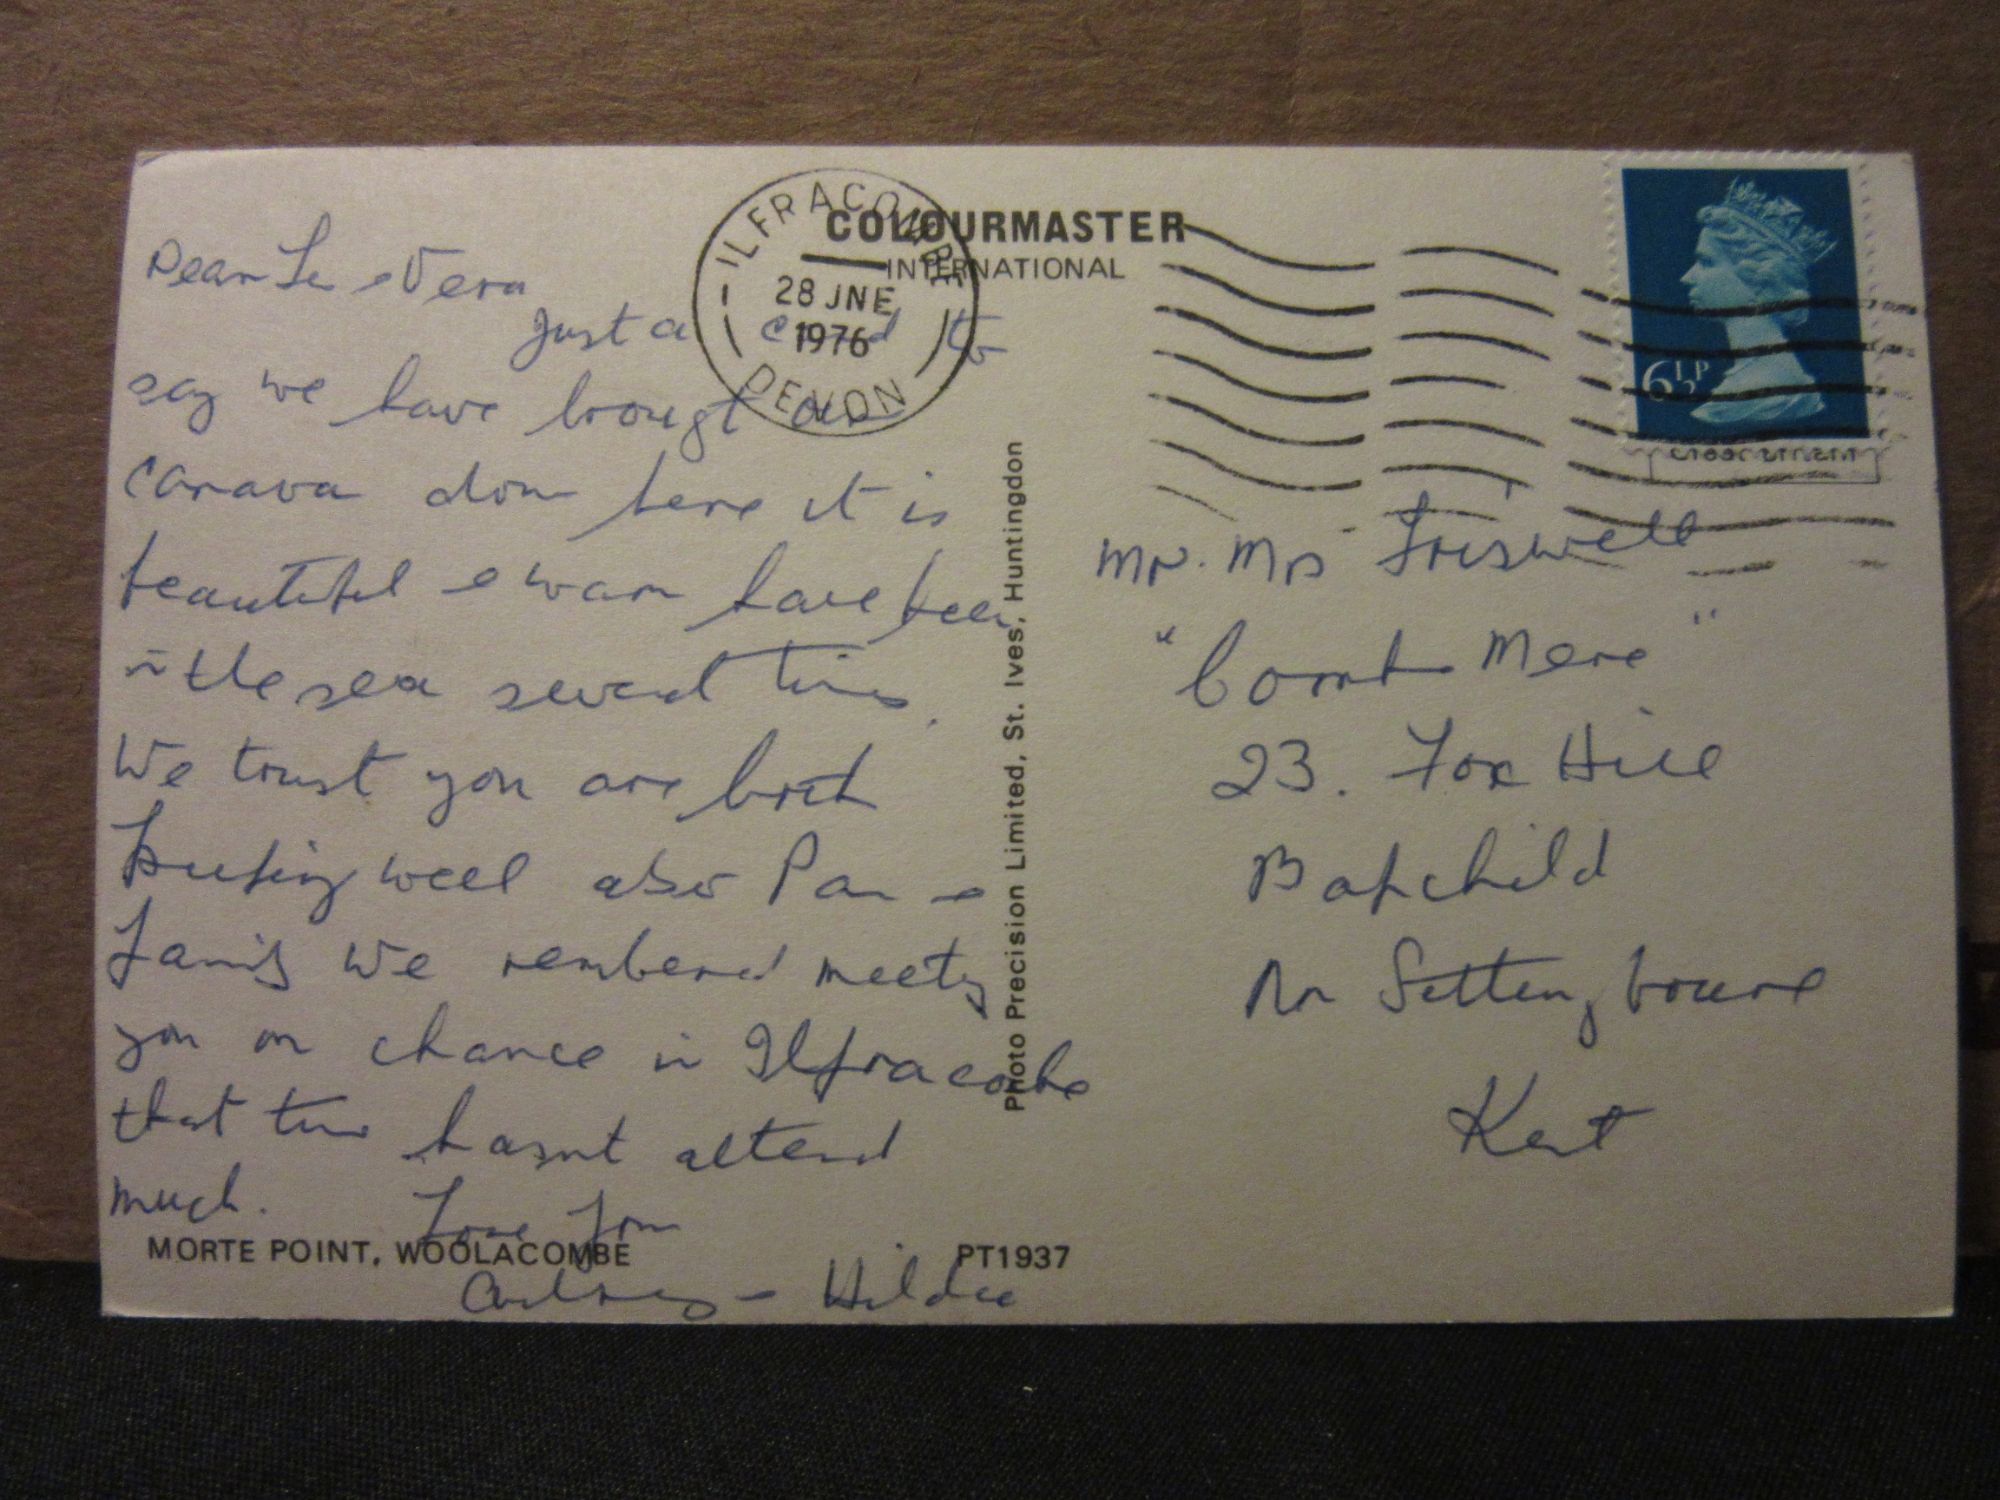 Dear Le & Vera
Just a card to
say we have brougt our
carava down here it is
beautiful & warm have been
in the sea several times.
We trust you are both
keeping well also Pam &
family we rembered meeting
you on chance in Ilfracombe
that time hasnt altend
much. Love from
Audrey & Hilda
COLOURMASTER
INTERNATIONAL
ILFRACOMBE
28 JNE
1976
DEVON
6½P
Photo Precision Limited, St. Ives, Huntingdon
Mr. Mrs Friswell
"Combe Mere"
23. Fox Hill
Bapchild
Nr Sittingbourne
Kent
MORTE POINT, WOOLACOMBE
PT1937